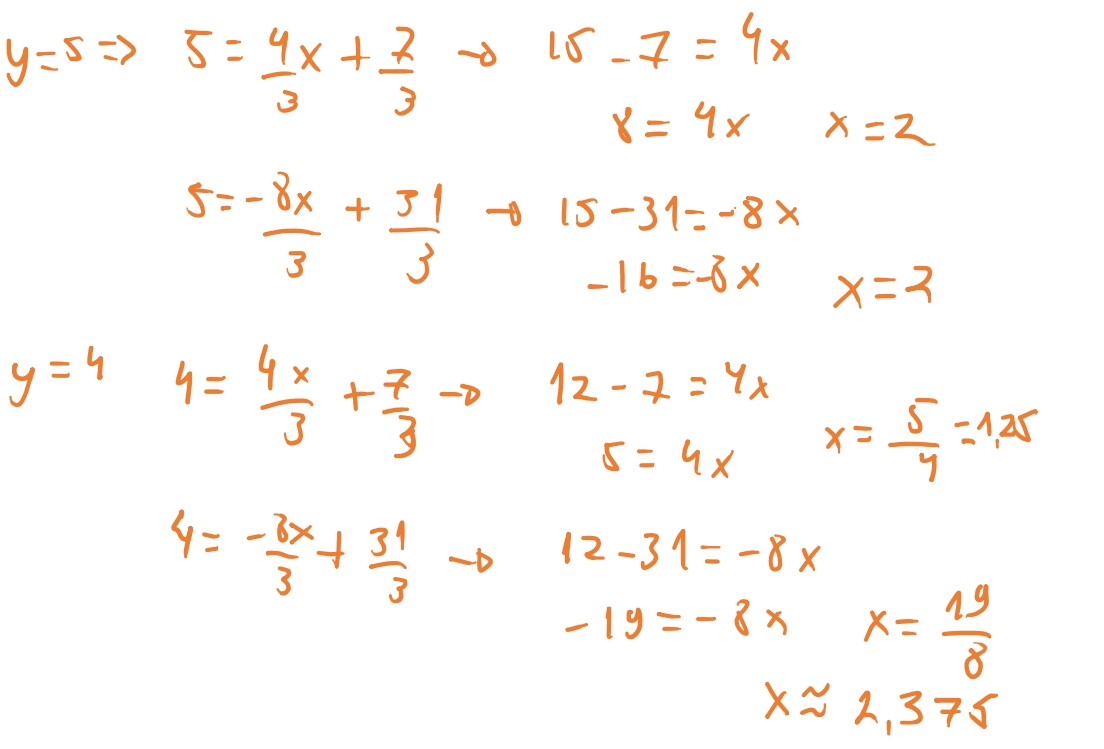 y=5 => 5 = 4x/3 + 7/3 → 15 - 7 = 4x
8 = 4x x = 2
5 = -8x/3 + 31/3 → 15 - 31 = -8x
-16 = -8x x = 2
y = 4 4 = 4x/3 + 7/3 → 12 - 7 = 4x
5 = 4x x = 5/4 = 1,25
4 = -8x/3 + 31/3 → 12 - 31 = -8x
-19 = -8x x = 19/8
x ≈ 2,375